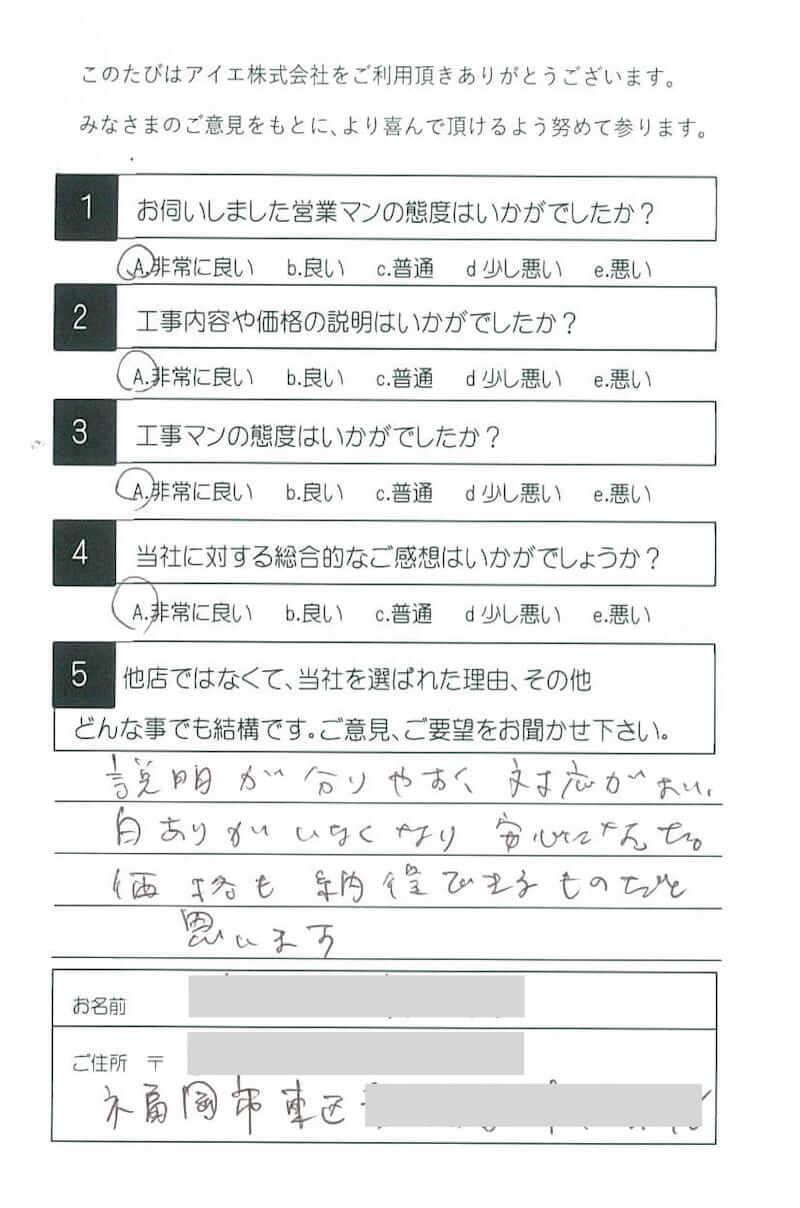 このたびはアイエ株式会社をご利用頂きありがとうございます。
みなさまのご意見をもとに、より喜んで頂けるよう努めて参ります。
1 お伺いしました営業マンの態度はいかがでしたか？
A.非常に良い b.良い c.普通 d 少し悪い e.悪い
2 工事内容や価格の説明はいかがでしたか？
A.非常に良い b.良い c.普通 d 少し悪い e.悪い
3 工事マンの態度はいかがでしたか？
A.非常に良い b.良い c.普通 d 少し悪い e.悪い
4 当社に対する総合的なご感想はいかがでしょうか？
A.非常に良い b.良い c.普通 d 少し悪い e.悪い
5 他店ではなくて、当社を選ばれた理由、その他
どんな事でも結構です。ご意見、ご要望をお聞かせ下さい。
説明が分りやすく、対応がよい。
白ありがいなくなり安心
価格も納得できるものだと
思います
お名前
ご住所 〒
福岡市東区